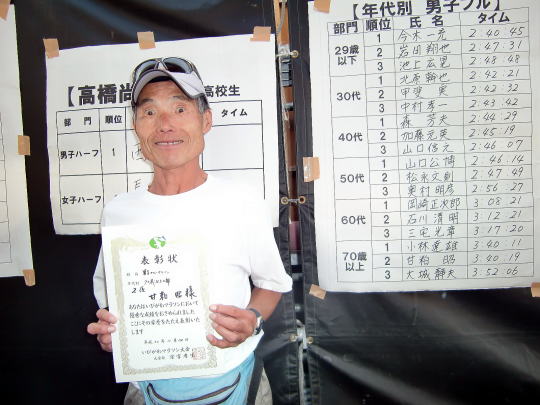 【高橋尚
高校生
部門 順位 タイム
男子ハーフ 1
女子ハーフ
【年代別 男子フル】
部門 順位 氏名 タイム
29歳以下
1 今木一充 2:40:45
2 岩田翔也 2:47:31
3 池上広晃 2:48:48
30代
1 北原 2:42:21
2 甲斐 実 2:42:32
3 中村孝一 2:43:42
40代
1 森 芳夫 2:44:29
2 加藤元英 2:45:19
3 山口信元 2:46:07
50代
1 山口公博 2:46:14
2 松永文創 2:47:49
3 奥村明彦 2:56:27
60代
1 岡崎正次郎 3:08:21
2 石川清明 3:12:21
3 三宅光章 3:17:20
70歳以上
1 小林重雄 3:40:11
2 甘粕 昭 3:40:19
3 大城静夫 3:52:06
表彰状
2位
甘粕 昭 様
あなたはいびがわマラソンにおいて
優秀な成績をおさめられました
ここにその栄誉をたたえ表彰いた
します
いびがわマラソン大会